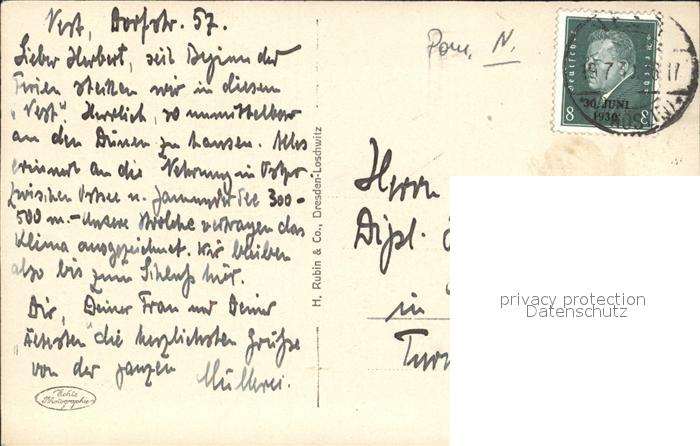 Vest, Dorfstr. 57.
Lieber Herbert, seit Beginn der
Ferien stecken wir in diesem
"Vest". Herrlich, so unmittelbar
an den Dünen zu hausen. Alles
erinnert an die Nehrung in Ostpr.
zwischen Ostsee u. Jamunder See 300-
500 m. - Unsere Strolche vertragen das
Klima ausgezeichnet. Wir bleiben
also bis zum Schluß hier.
Dir, Deiner Frau und Deinem
"Ältesten" die herzlichsten Grüße
von der ganzen
Müllerei.
Echte
Photographie
H. Rubin & Co., Dresden-Loschwitz
Pom. N.
deutsches
30. JUNI
1930
8 8
Herrn
Dipl.
in
privacy protection
Datenschutz